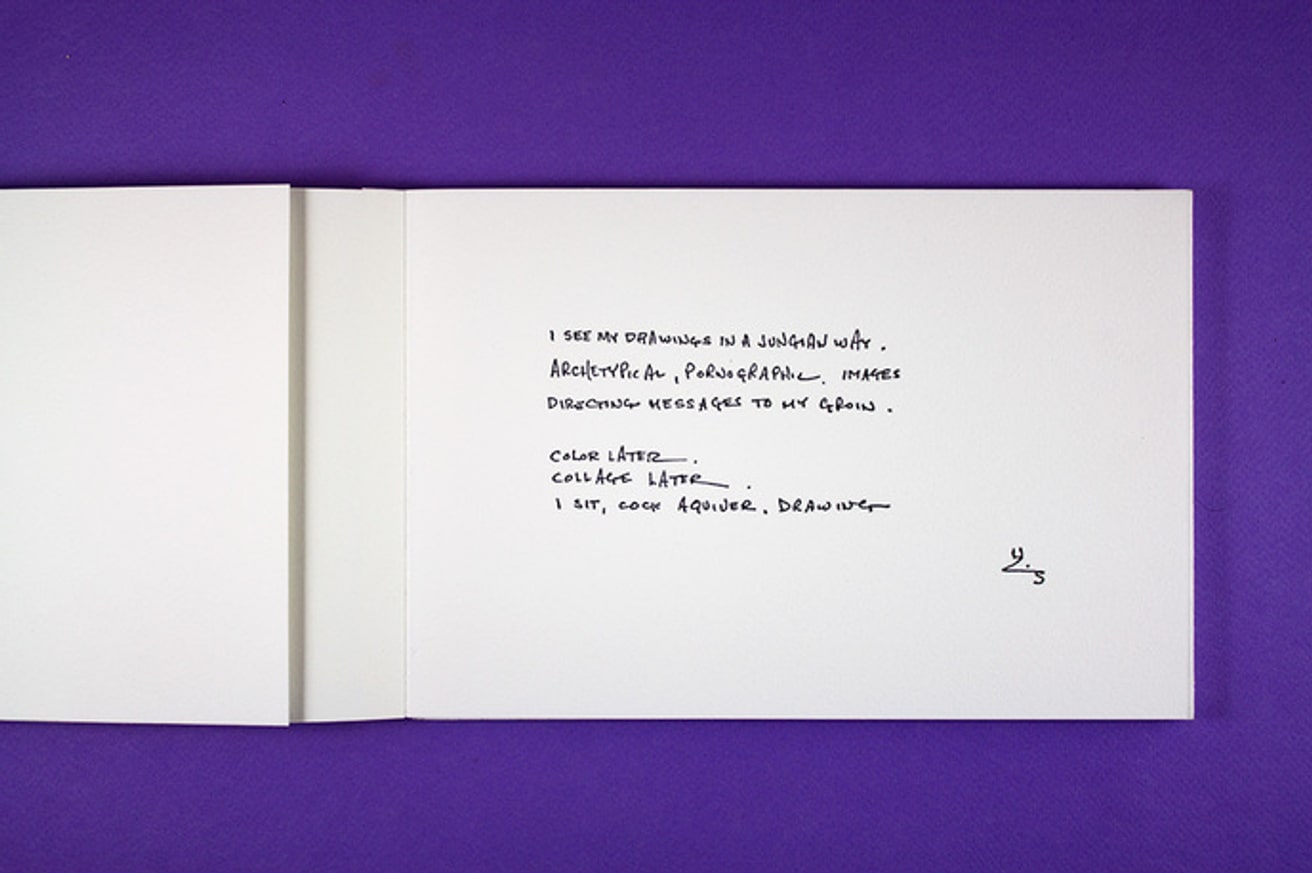 I SEE MY DRAWINGS IN A JUNGIAN WAY.
ARCHETYPICAL, PORNOGRAPHIC. IMAGES
DIRECTING MESSAGES TO MY GROIN.
COLOR LATER.
COLLAGE LATER.
I SIT, COCK AQUIVER. DRAWING